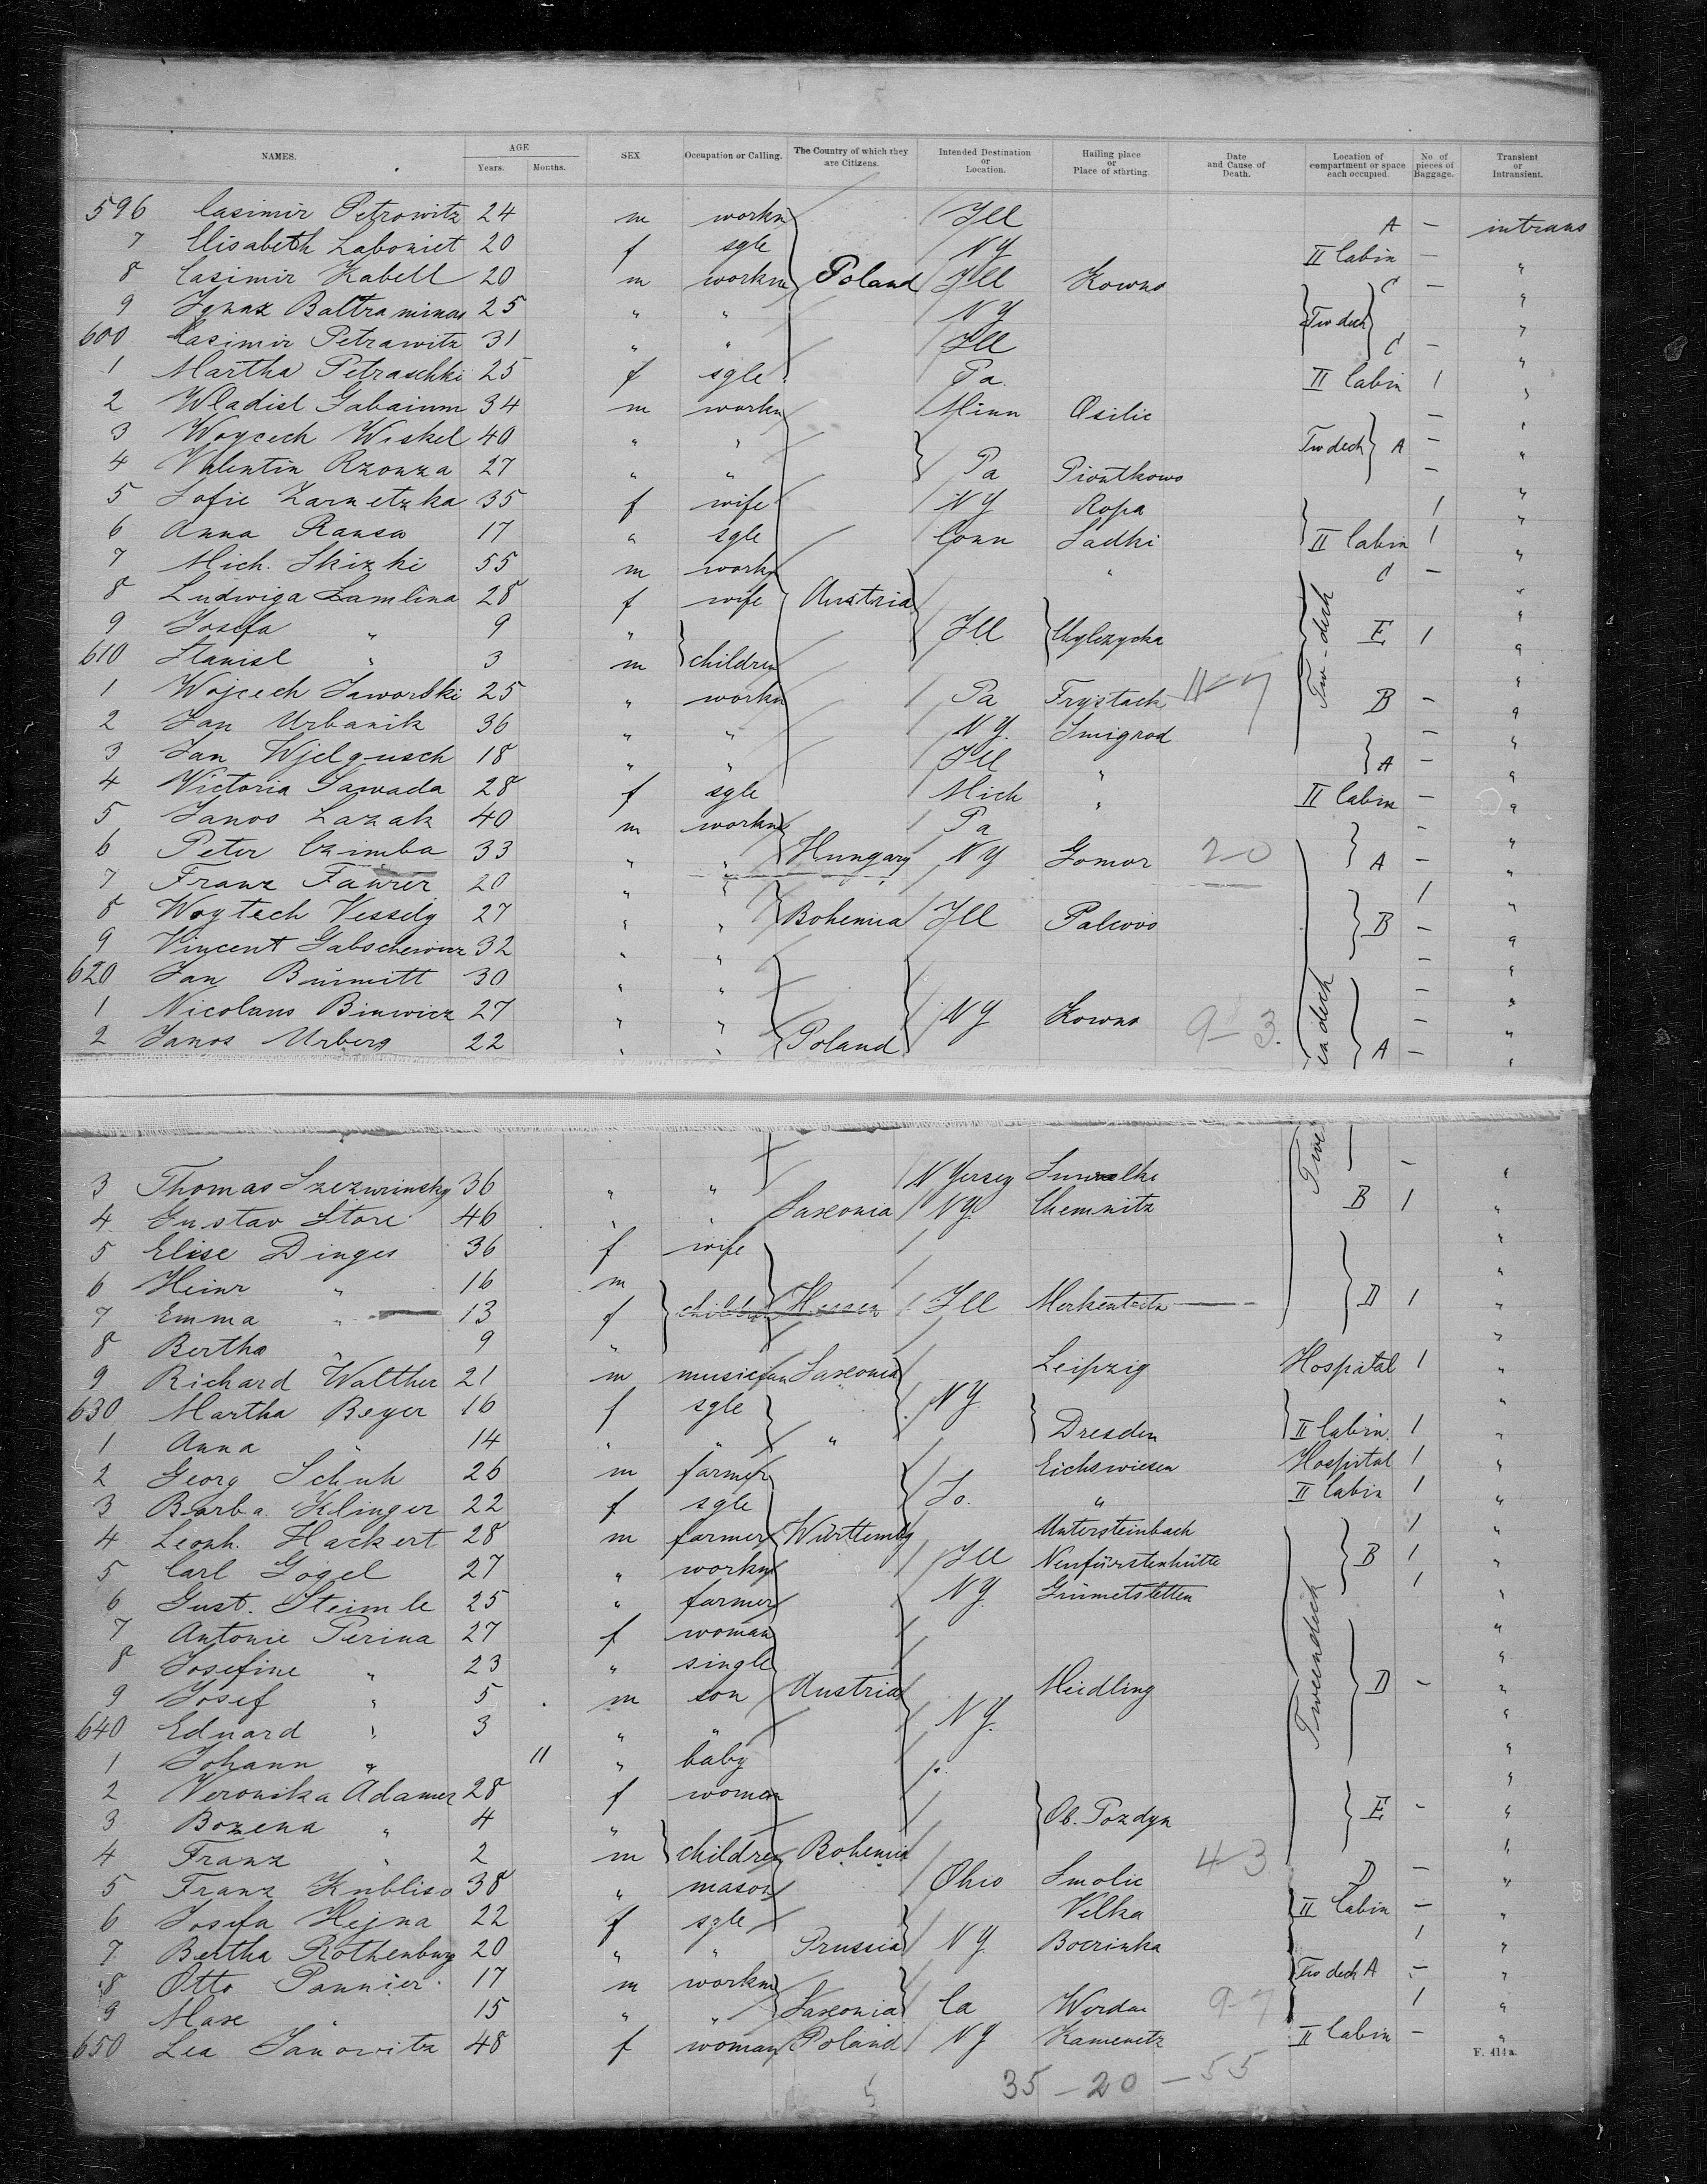 NAMES. AGE Years. Months. SEX Occupation or Calling. The Country of which they are Citizens. Intended Destination or Location. Hailing place or Place of starting. Date and Cause of Death. Location of compartment or space each occupied. No. of pieces of Baggage. Transient or Intransient.
596 Casimir Petrowitz 24 m workn Ill A — intrans
7 Elisabeth Laboniet 20 f sgle NY II Cabin — "
8 Casimir Kabell 20 m workm Poland Ill Kowno C — "
9 Ignaz Baltraminas 25 " " NY Tw deck "
600 Casimir Petrawitz 31 " " Ill C — "
1 Martha Petraschki 25 f sgle Pa. II Cabin 1 "
2 Wladisl Gabainm 34 m workn Minn Osilic — "
3 Woycech Wiskel 40 " " Tw deck A — "
4 Valentin Rzonza 27 " " Pa Piontkowo — "
5 Sofie Zarnetzka 35 f wife NY Ropa 1 "
6 Anna Ransa 17 " sgle Conn Sadki II Cabin 1 "
7 Mich. Skizki 55 m workn " C — "
8 Ludwiga Lamlina 28 f wife Austria "
9 Josefa " 9 " Ill Chylezycka Tw-deck E 1 "
610 Stanisl " 3 m children "
1 Wojcech Jaworski 25 " workn Pa Frystack 11-7 B — "
2 Jan Urbanik 36 " " N.Y. Smigrod — "
3 Jan Wjelgusch 18 " " Ill " A — "
4 Victoria Sawada 28 f sgle Mich " II Cabin — "
5 Janos Lazak 40 m workm Pa — "
6 Peter Czimba 33 " " Hungary NY Gomor 2-0 A — "
7 Franz Faurer 20 " " 1 "
8 Woytech Vessely 27 " " Bohemia Ill Palcovo B — "
9 Vincent Gabschewicz 32 " " "
620 Jan Bummitt 30 " " — "
1 Nicolaus Binwicz 27 " " NY Kowno — "
2 Janos Urberg 22 " " Poland 9-3. A — "
3 Thomas Szezurinsky 36 " " N Yersey Suwalki — "
4 Gustav Store 46 " " Saxonia NY. Chemnitz B 1 "
5 Elise Dinges 36 f wife "
6 Heinr " 16 m "
7 Emma " 13 f children Hessen Ill Merkenfritz D 1 "
8 Bertha " 9 " "
9 Richard Walther 21 m musician Saxonia Leipzig Hospital 1 "
630 Martha Beyer 16 f sgle NY "
1 Anna " 14 " " " Dresden II Cabin. 1 "
2 Georg Schuh 26 m farmer Eichswiesen Hospital 1 "
3 Barba. Klinger 22 f sgle Jo. " II Cabin 1 "
4 Leonh. Hackert 28 m farmer Württembg Untersteinbach 1 "
5 Carl Gogel 27 " workm Ill Neufürstenhütte B 1 "
6 Gust. Steimle 25 " farmer NY. Grümetstetten 1 "
7 Antonie Perina 27 f woman "
8 Josefine " 23 " single Tweendeck "
9 Josef " 5 m son Austria Meidling D — "
640 Eduard " 3 " " NY. "
1 Johann " 11 " baby "
2 Veronika Adamer 28 f woman "
3 Bozena " 4 " Ob. Pozdyn E — "
4 Franz " 2 m children Bohemia 4-3 "
5 Franz Kubliso 38 " mason Ohio Smolic D — "
6 Josefa Hejna 22 f sgle Velka II Cabin — "
7 Bertha Rothenburg 20 " " Prussia NY. Bocrinka 1 "
8 Otto Pannier 17 m workm Tw deck A — "
9 Max " 15 " " Saxonia Ca Werdau 9-7 1 "
650 Lea Janowitz 48 f woman Poland NY Kamenetz II Cabin — "
F. 414a.
35 - 20 - 55